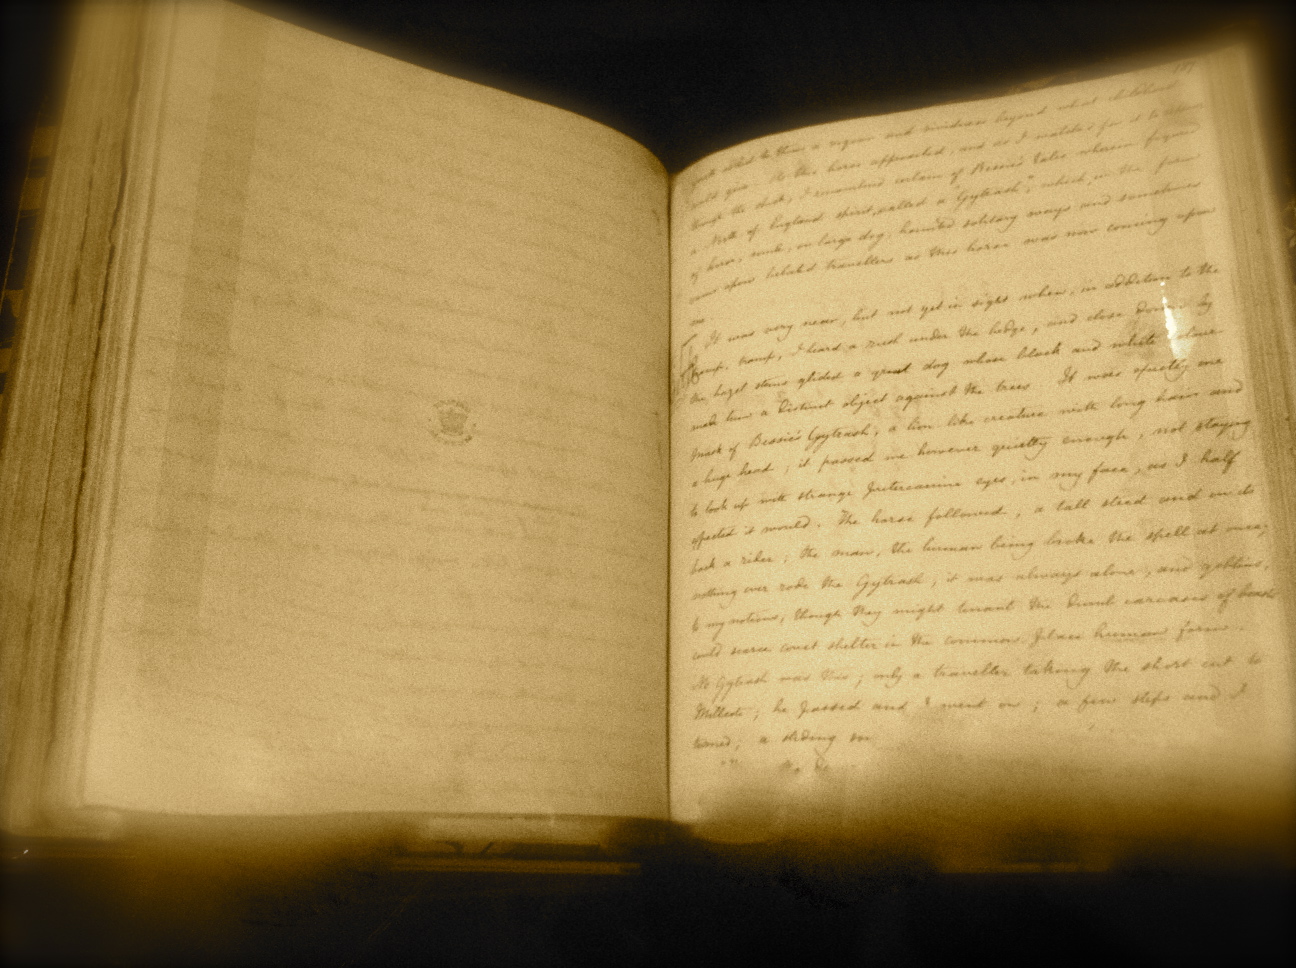 youth add to them a vigour and vividness beyond what childhood
could give. As this horse approached, and as I watched for it to appear
through the dusk, I remembered certain of Bessie's Tales wherein figured
a North-of-England spirit, called a "Gytrash", which, in the form
of horse, mule, or large dog, haunted solitary ways and sometimes
came upon belated travellers as this horse was now coming upon
me.
It was very near, but not yet in sight when, in addition to the
tramp, tramp, I heard a rush under the hedge, and close down by
the hazel stems glided a great dog whose black and white colour
made him a distinct object against the trees. It was exactly one
mask of Bessie's Gytrash, a lion-like creature with long hair and
a huge head; it passed me however quietly enough, not staying
to look up with strange pretercanine eyes, in my face, as I half
expected it would. The horse followed, a tall steed and on its
back a rider; the man, the human being broke the spell at once;
nothing ever rode the Gytrash, it was always alone, and goblins,
to my notions, though they might tenant the dumb carcases of beasts
could scarce covet shelter in the common-place human form.
No Gytrash was this; only a traveller taking the short cut to
Millcote; he passed and I went on; a few steps and I
turned; a sliding